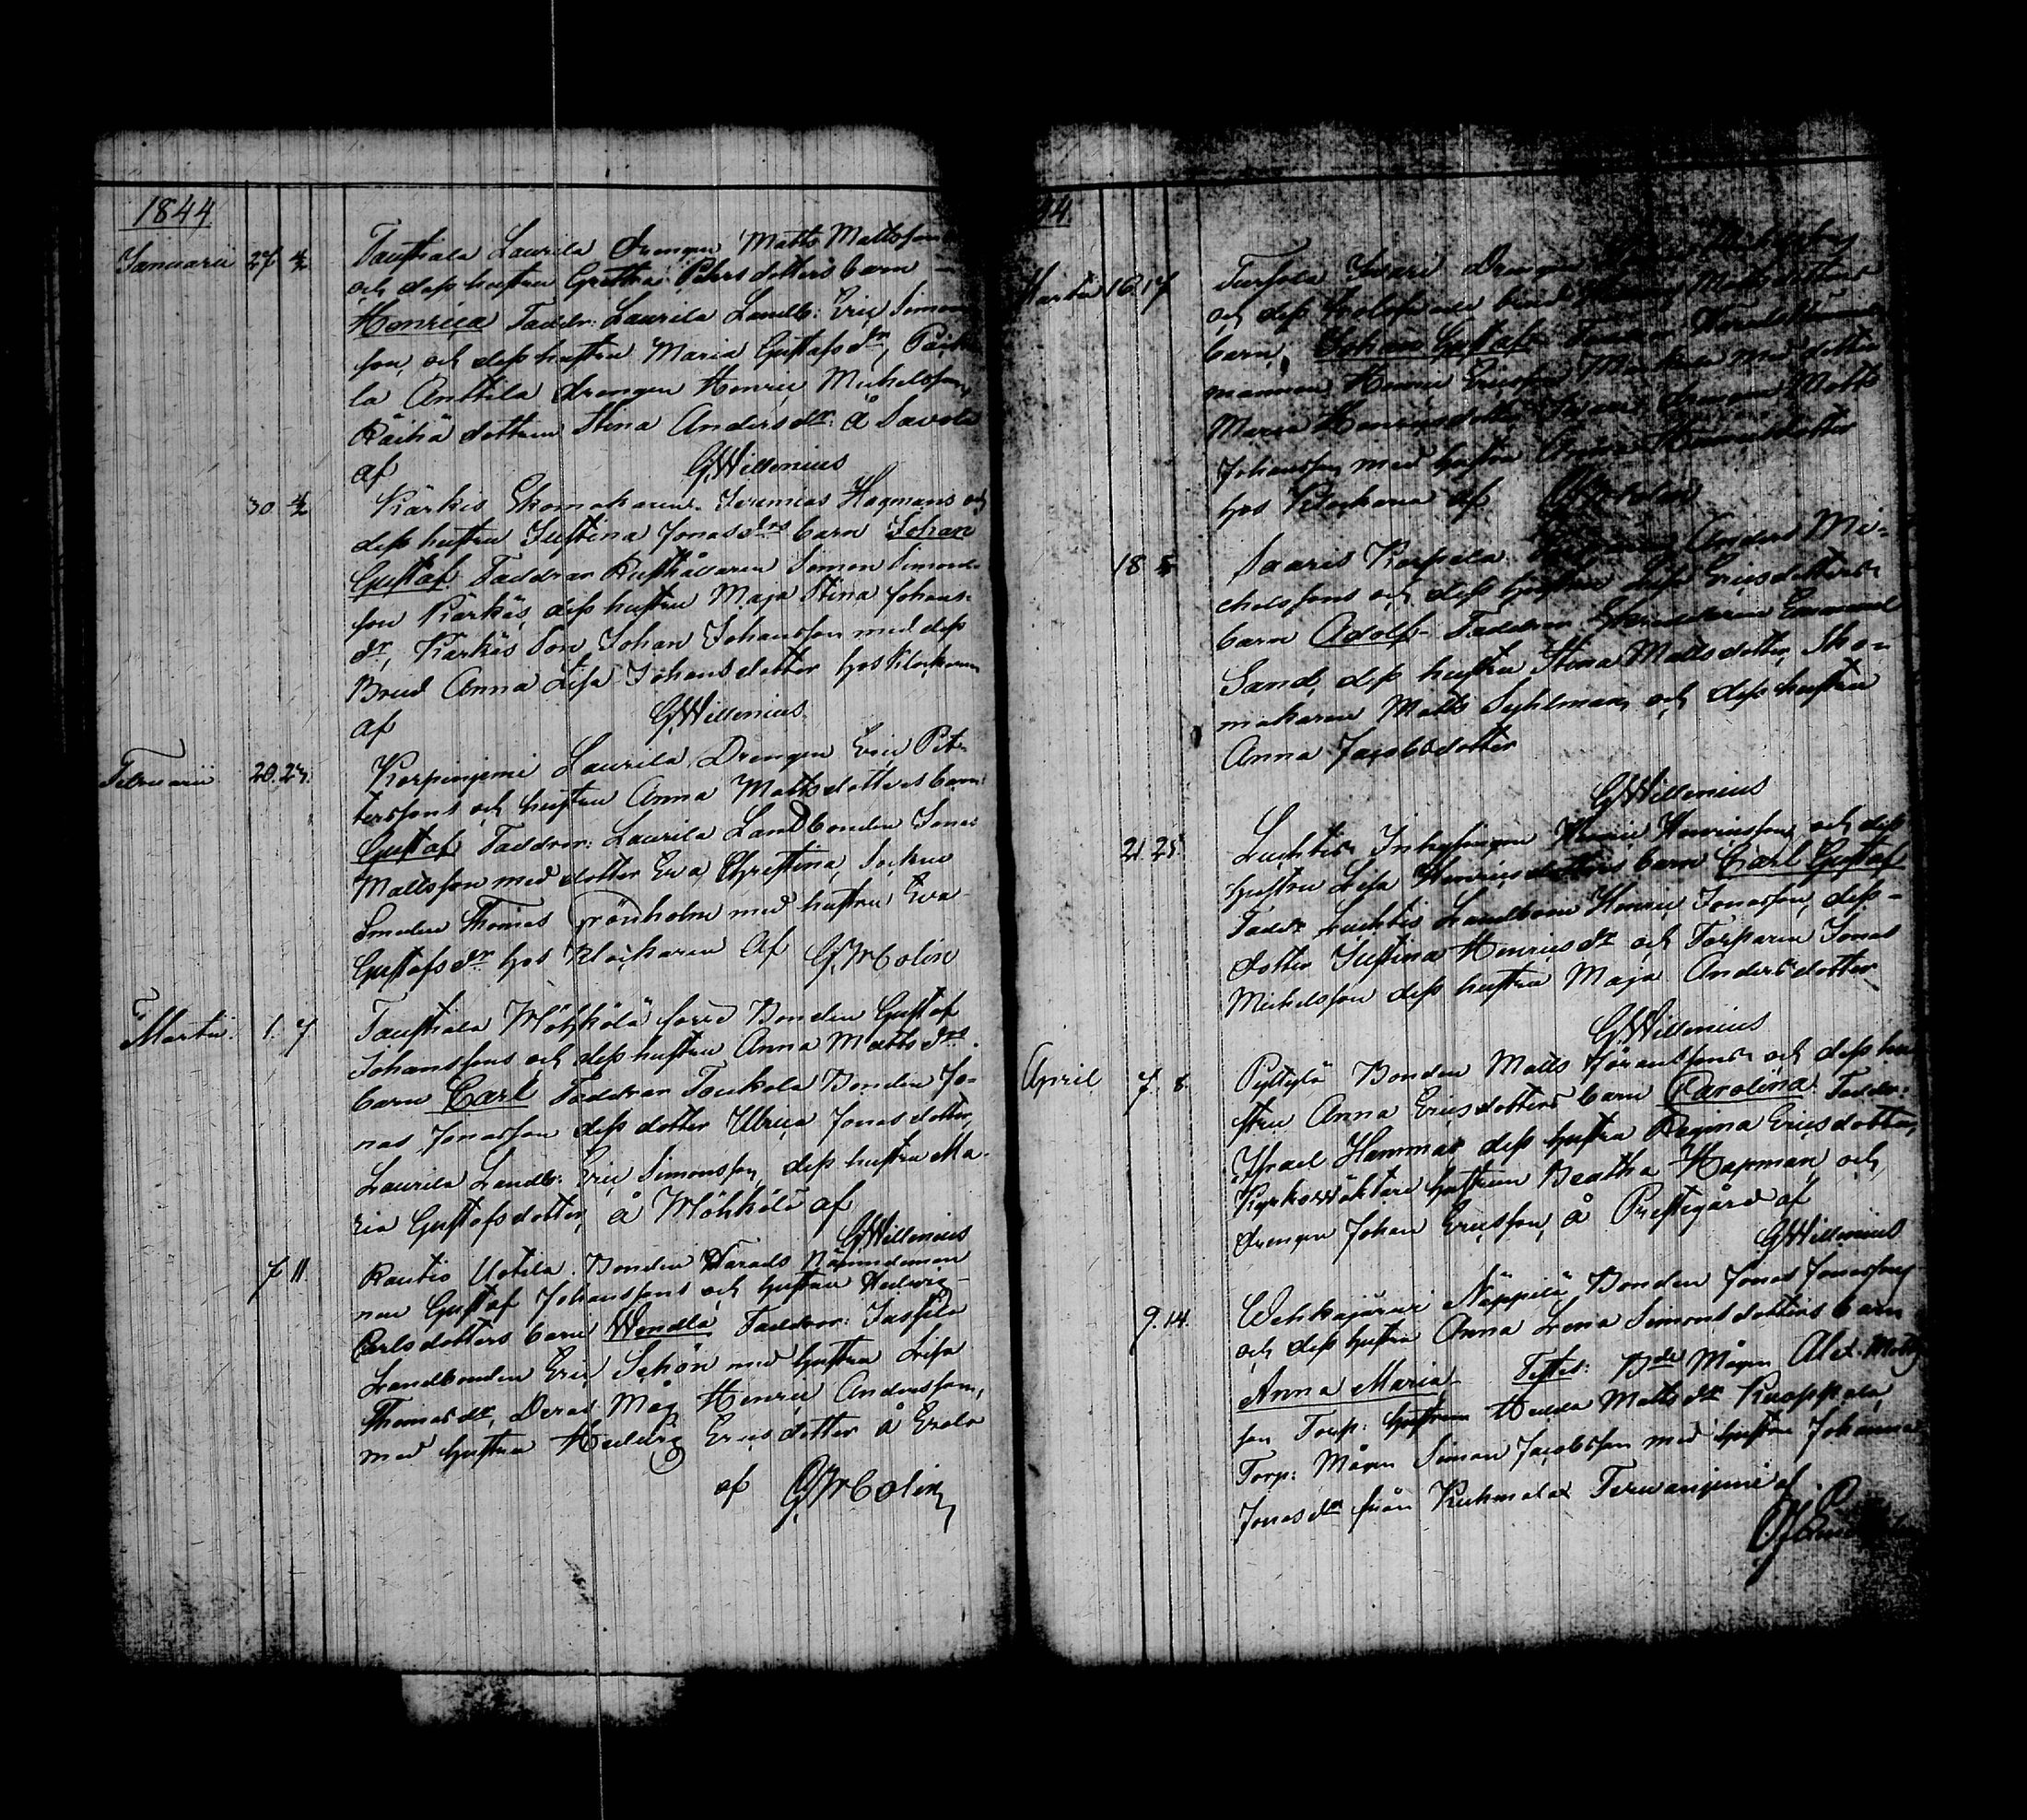 1844
Januarii 27 4/2 Taustiala Laurila Drengen Matts Mattsson
och dess hustru Gretha Pehrsdotters barn
Henrica Faddr: Laurila Landb: Eric Simons
son, och dess hustru Maria Gustafsdr,
la Anttila drengen Henric Michelsson,
Räihä dottren Stina Andersdr. å Savola
af GWillenius
30. 4/2 Kärkis Skomakaren Jeremias Hagmans och
dess hustru Justina Jonasdrs barn Johan
Gustaf Faddrar Rusthållaren Simon Simons-
son Kärkis, dess hustru Maja Stina Johans-
dr, Kärkis Son Johan Johansson med dess
Brud Anna Lisa Johansdotter hos Klockaren
af GWillenius.
Februarii 20. 25. Korpinjemi Laurila Drengen Eric Pet-
terssons och hustru Anna Mattsdotters barn
Gustaf Faddrar: Laurila Landbonden Jonas
Mattsson med dotter Eva Christina, Sockne
Smeden Thomas Grönholm med hustru Eva
Gustafsdr hos Klockaren af
Martii. 1. 7 Taustiala Möhkölä förre Bonden Gustaf
Johanssons och dess hustru Anna Mattsdrs
barn Carl Faddrar Toukola Bonden Jo-
nas Jonasson dess dotter Ulrica Jonasdotter,
Laurila Landb: Eric Simonsson, dess hustru Ma-
ria Gustafsdotter, å Möhkölä af
GWillenius
7 11. Rautio Uotila Bonden Härads Nämndeman
nen Gustaf Johanssons och hustru Hedvig
Carlsdotters barn Wendla Faddrar: Jussila
Landbonden Eric Schön med hustru Lisa
Thomasdr, Deras Måg Henric Andersson,
med hustru Hedvig Ericsdotter å Erola
af
44.
Martii 16 17 Drengen
och dess Mattsdotters
barn, Johan Gustaf Faddrar
mannen Henric Ericsson med dotter
Maria Henricsdotter, drengen Matts
Johansson med hustru Anna
hos Klockaren af
18 Saaris Korpela Anders Mi-
chelssons och dess hustru Lisa Ericsdotters
barn Adolf Faddrar Skräddaren Emanuel
Sand, dess hustru Stina Mattsdotter, Sko-
makaren Matts Syhlman, och dess hustru
Anna Jacobsdotter
GWillenius
21. 25. Luchtis Inhysingen Henric Henricsson, och dess
hustru Lisa Henricsdotters barn Carl Gustaf
Faddr Luchtis Landbonn Henric Jonasson, dess
dotter Justina Henricsdr och Torparen Jonas
Michelsson dess hustru Maja Andersdotter
GWillenius
April 7. 8. Pyttylä Bonden Matts Göranssons och dess hu
stru Anna Ericsdotters barn Carolina Faddr:
Israel Hammar dess hustru Regina Ericsdotter,
Kyrkowäktare hustrun Beatha Hagman och
drengen Johan Ericsson, å Prestegård af
GWillenius
9. 14. Wehkajärvi Näppilä Bonden Jonas Jonasson
och dess hustru Anna Lena Simonsdotters barn
Anna Maria Testes: Bde Mågen Alex: Matts
son Torp: hustrun Hedda Mattsdr
Torp: Mågen Simon Jacobsson med hustru Johanna
Jonasdr från Kuhmalax af